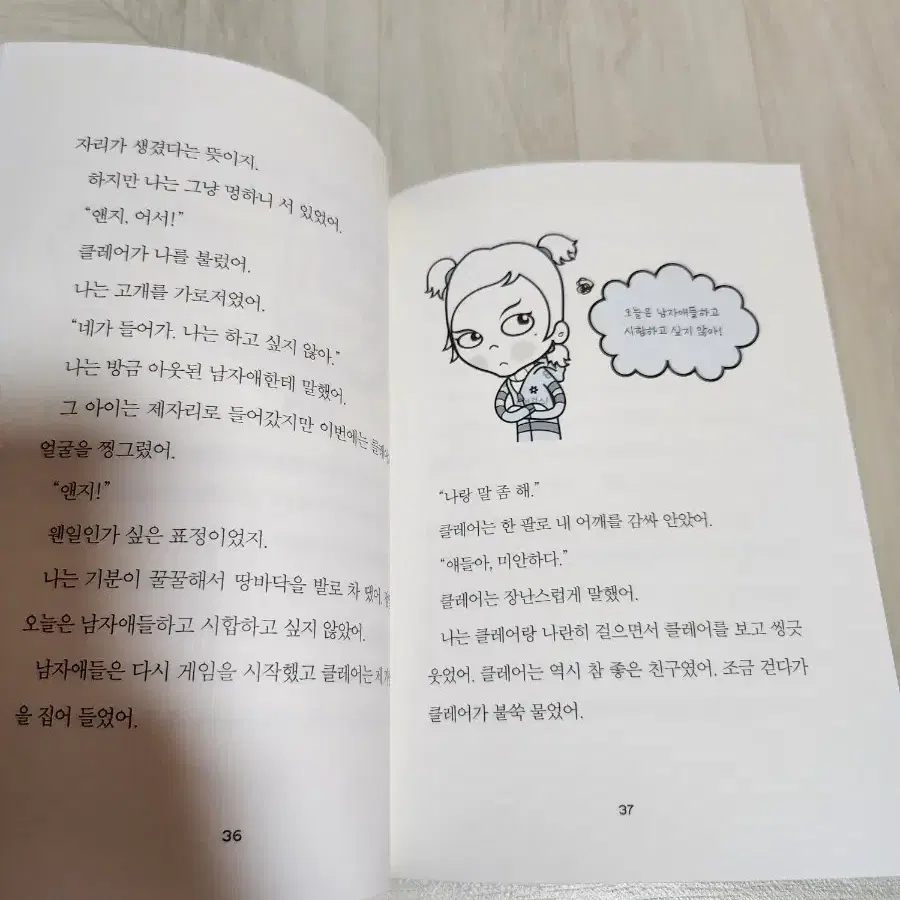 자리가 생겼다는 뜻이지.
하지만 나는 그냥 멍하니 서 있었어.
“앤지, 어서!”
클레어가 나를 불렀어.
나는 고개를 가로저었어.
“네가 들어가. 나는 하고 싶지 않아.”
나는 방금 아웃된 남자애한테 말했어.
그 아이는 제자리로 들어갔지만 이번에는
얼굴을 찡그렸어.
“앤지!”
웬일인가 싶은 표정이었지.
나는 기분이 꿀꿀해서 땅바닥을 발로 차 댔어.
오늘은 남자애들하고 시합하고 싶지 않았어.
남자애들은 다시 게임을 시작했고 클레어는
을 집어 들었어.
36
오늘은 남자애들하고
시합하고 싶지 않아!
“나랑 말 좀 해.”
클레어는 한 팔로 내 어깨를 감싸 안았어.
“얘들아, 미안하다.”
클레어는 장난스럽게 말했어.
나는 클레어랑 나란히 걸으면서 클레어를 보고 씽긋
웃었어. 클레어는 역시 참 좋은 친구였어. 조금 걷다가
클레어가 불쑥 물었어.
37